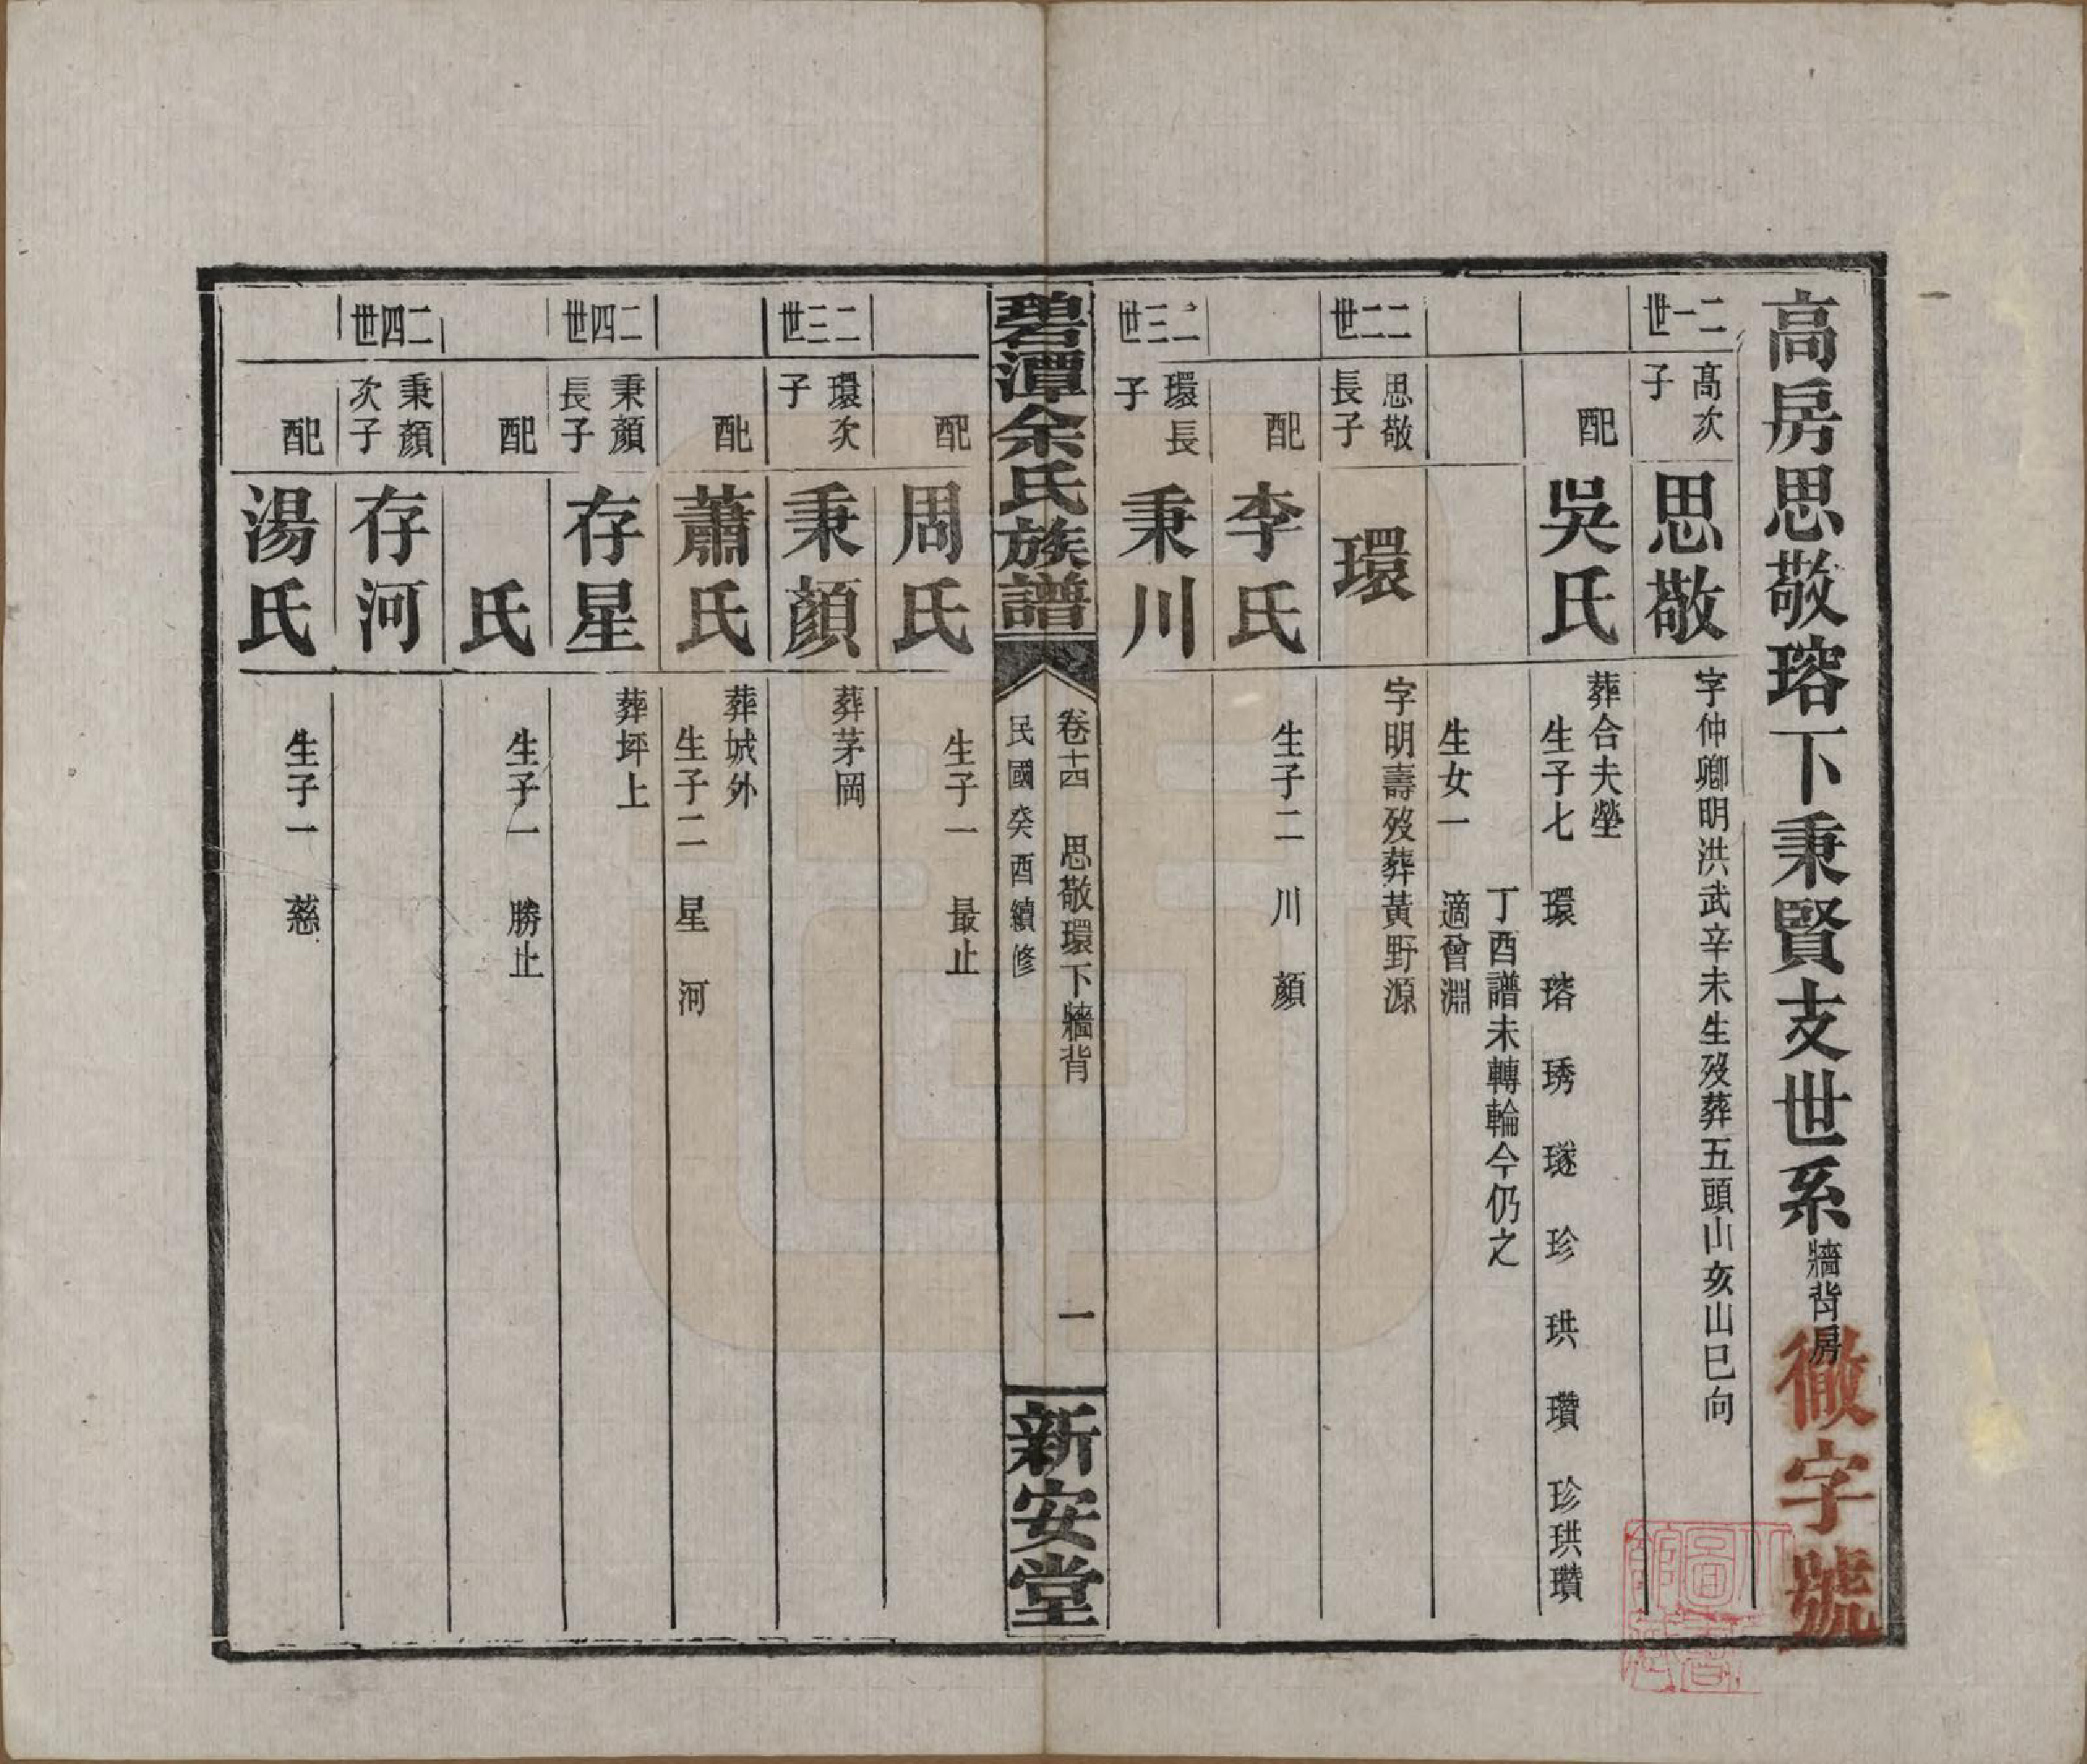 高房思敬瑢下秉賢支世系 牆背房
徹字號
二一世 高次子 思敬 字仲卿明洪武辛未生歿葬五頭山亥山巳向
配 吳氏 葬合夫塋
生子七 環 瑢 琇 璲 珍 珙 瓚 珍珙瓚
丁酉譜未轉輪今仍之
生女一 適曾淵
二二世 思敬長子 環 字明壽歿葬黃野源
配 李氏 生子二 川 顏
二三世 環長子 秉川
碧潭余氏族譜 卷十四 思敬環下牆背 一
民國癸酉續修
新安堂
配 周氏 生子一 最止
二三世 環次子 秉顏 葬茅岡
配 蕭氏 葬城外
生子二 星 河
二四世 秉顏長子 存星 葬坪上
配 氏 生子一 勝止
二四世 秉顏次子 存河
配 湯氏 生子一 慈